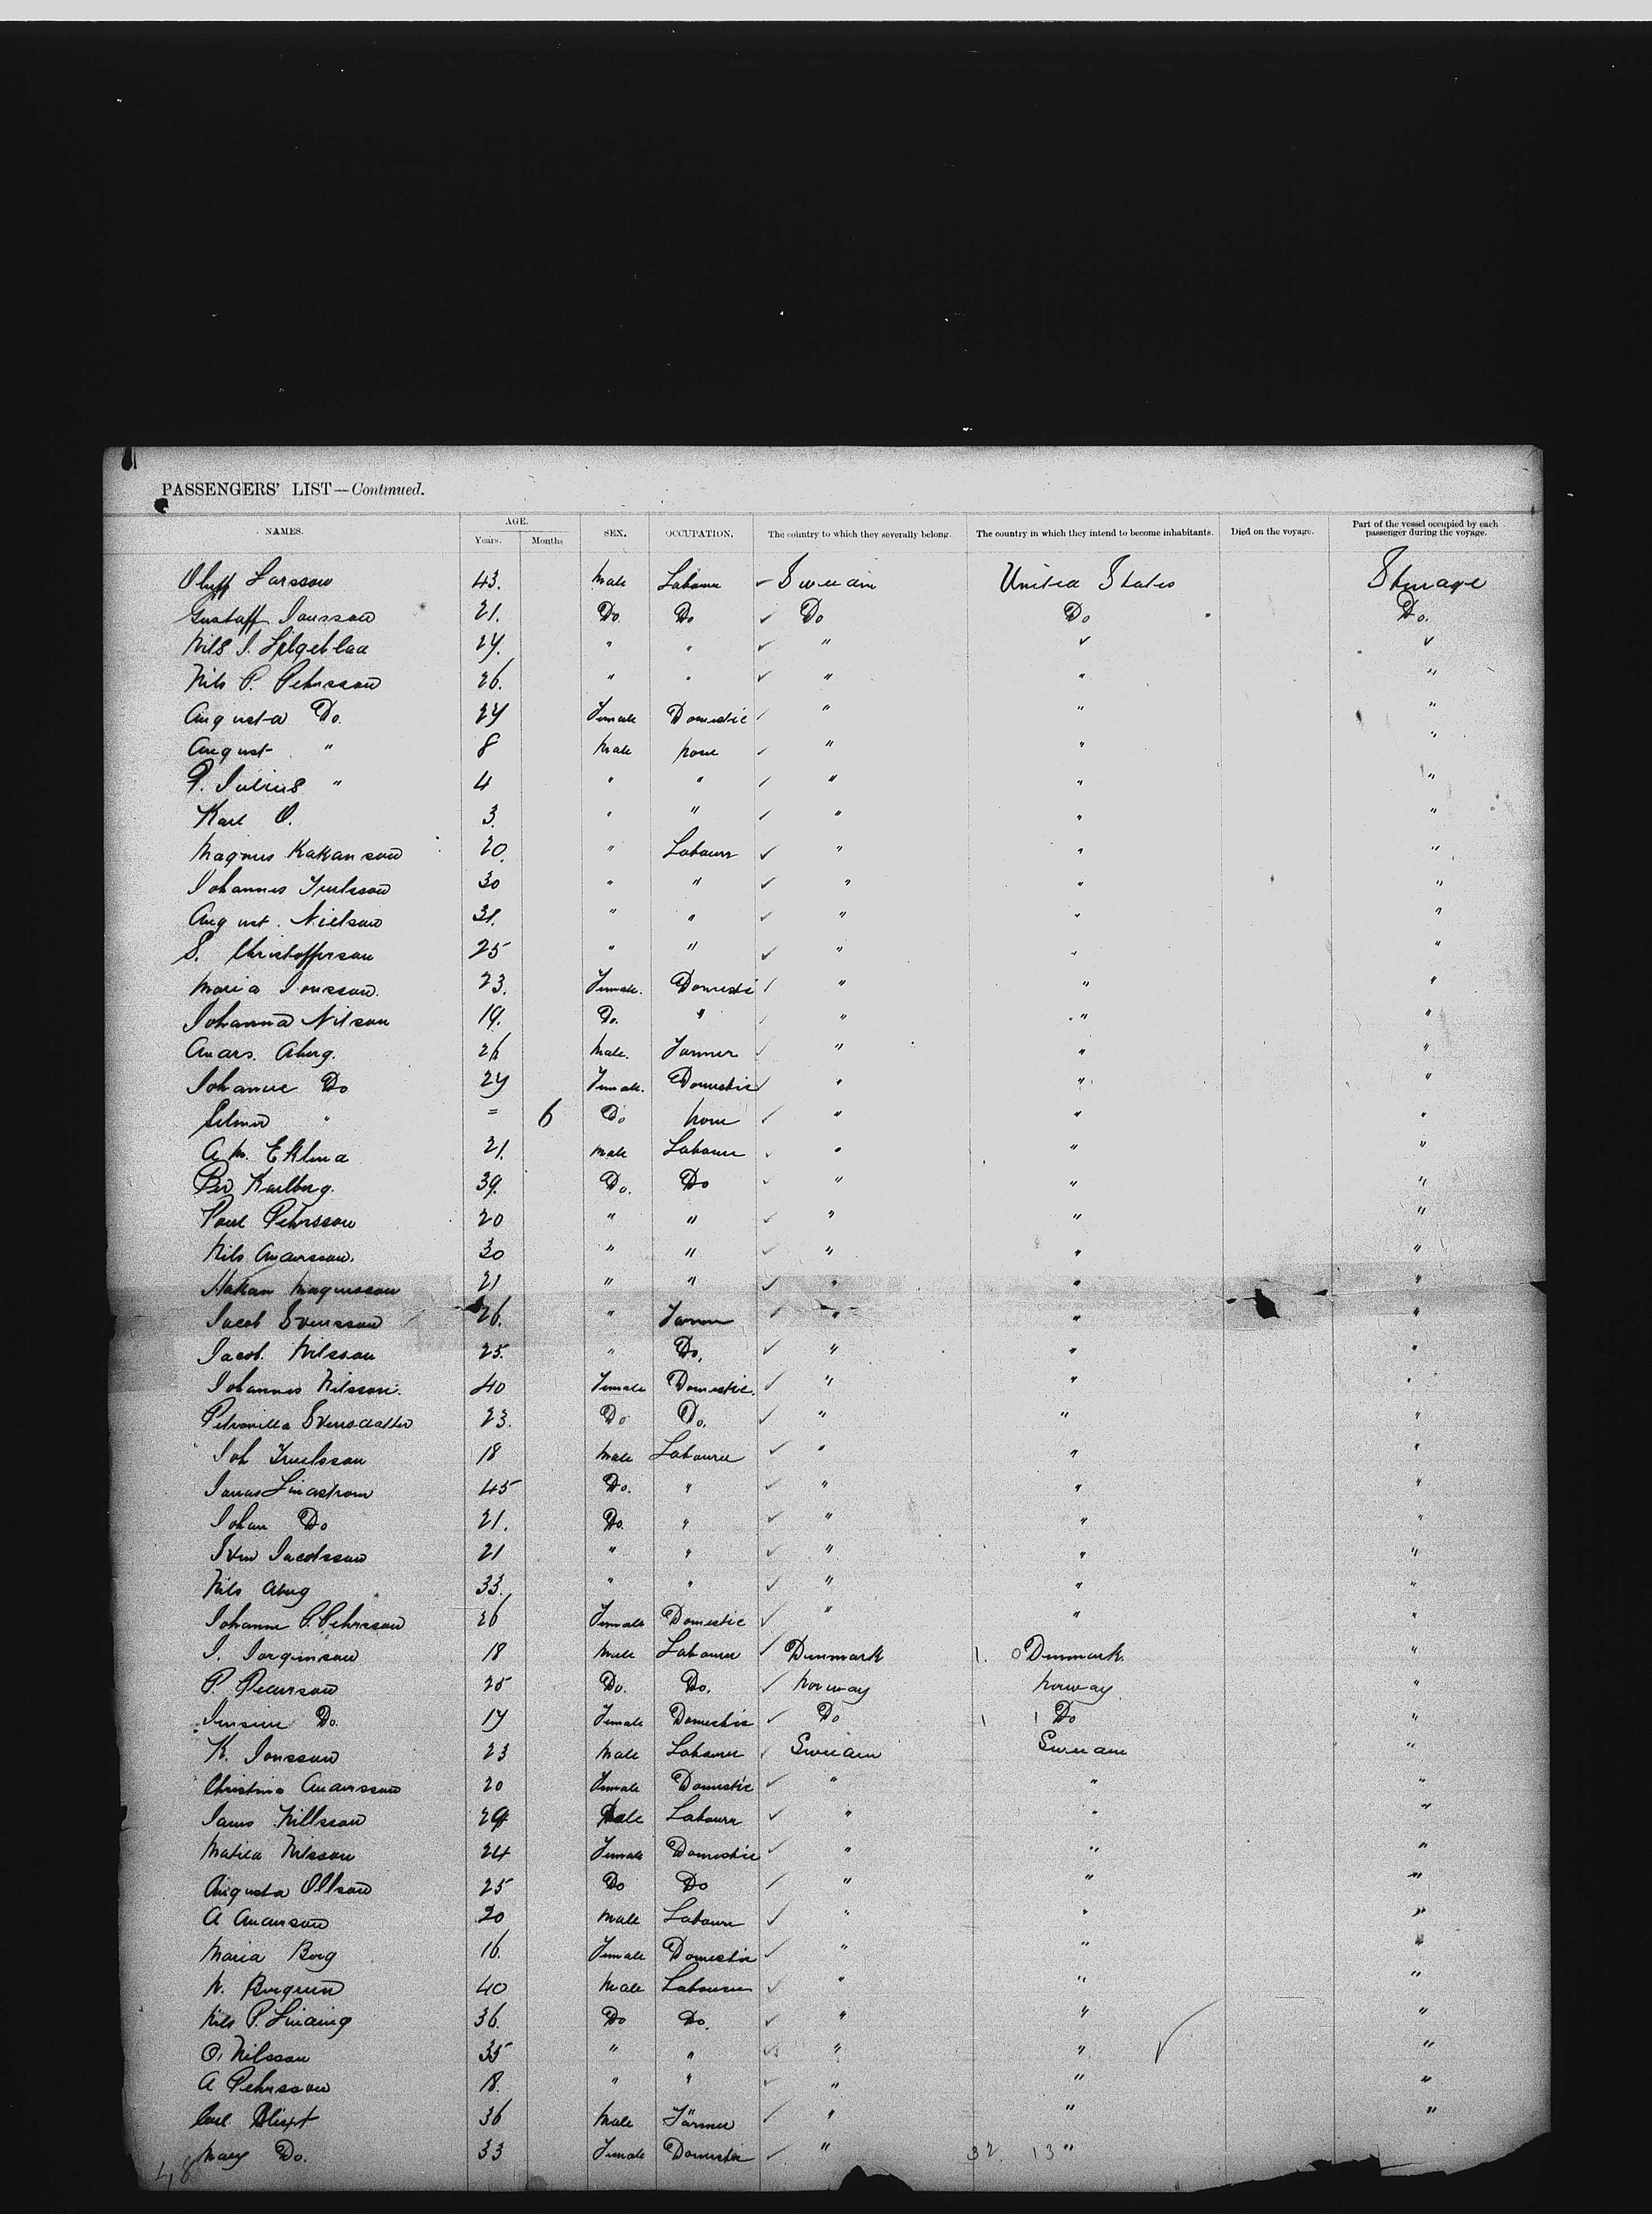 PASSENGERS' LIST—Continued.
NAMES. AGE. Years. Months SEX. OCCUPATION. The country to which they severally belong. The country in which they intend to become inhabitants. Died on the voyage. Part of the vessel occupied by each passenger during the voyage.
Oluff Larsson 43. Male Labourer ✓ Sweden United States Steerage
Gustaff Jonsson 21. Do. Do ✓ Do Do Do.
Nils J. 27. " " ✓ " ✓ ✓
Nils P. Pehrsson 26. " " ✓ " " "
Augusta Do. 27 Female Domestic ✓ " " "
August " 8 Male none ✓ " " "
P. Julius " 4 " " ✓ " " "
Karl O. 3. " " ✓ " " "
Magnus Hakansson 20. " Labourer ✓ " " "
Johannes Trulsson 30 " " ✓ " " "
August. Nielson 31. " " ✓ " " "
S. Christofferson 25 " " ✓ " " "
Maria Jonsson. 23. Female. Domestic ✓ " " "
Johanna Nilson 19. Do. " ✓ " " "
Anders. Aberg. 26 Male. Farmer ✓ " " "
Johanne Do 27 Female. Domestic ✓ " " "
Selma " = 6 Do none ✓ " " "
A. M. Eklund 21. Male Labourer ✓ " " "
Per Karlberg. 39. Do. Do ✓ " " "
Poul Pehrsson 20 " " ✓ " " "
Nils Andersson. 30 " " ✓ " " "
Hakan Magnusson 21 " " ✓ " " "
Jacob Svensson 26. " Farmer ✓ " " "
Jacob. Nilsson 25. " Do. ✓ " " "
Johannes Nilsson. 40 Female Domestic. ✓ " " "
Petronilla Svensdatter 23. Do Do. ✓ " " "
Joh Trulsson 18 Male Labourer ✓ " " "
Jonas Lindstrom 45 Do. " ✓ " " "
Johan Do 21. Do. " ✓ " " "
Sven Jacobsson 21 " " ✓ " " "
Nils Aberg 33. " " ✓ " " "
Johanne P. Pehrsson 26 Female Domestic ✓ " " "
J. Jorginson 18 Male Labourer ✓ Denmark 1. 0 Denmark. "
P. Pederson 25 Do. Do. ✓ Norway Norway. "
Do. 17 Female Domestic ✓ Do 1 1 Do "
K. Jonsson 23 Male Labourer ✓ Sweden Sweden "
Christina Andersson 20 Female Domestic ✓ " " "
Nillsson 29 Male Labourer ✓ " " "
Matilda Nilsson 24 Female Domestic ✓ " " "
Augusta Ollson 25 Do Do ✓ " " "
A Anderson 20 Male Labourer ✓ " " "
Maria Borg 16. Female Domestic ✓ " " "
N. Borgren 40 Male Labourer ✓ " " "
Nils P. Linding 36. Do Do. ✓ " " "
O. Nilsson 35 " " ✓ " " ✓ "
A Pehrsson 18. " " ✓ " " "
Carl Blixt 36 Male Farmer ✓ " " "
Mary Do. 33 Female Domestic ✓ " 32. 13 "
48